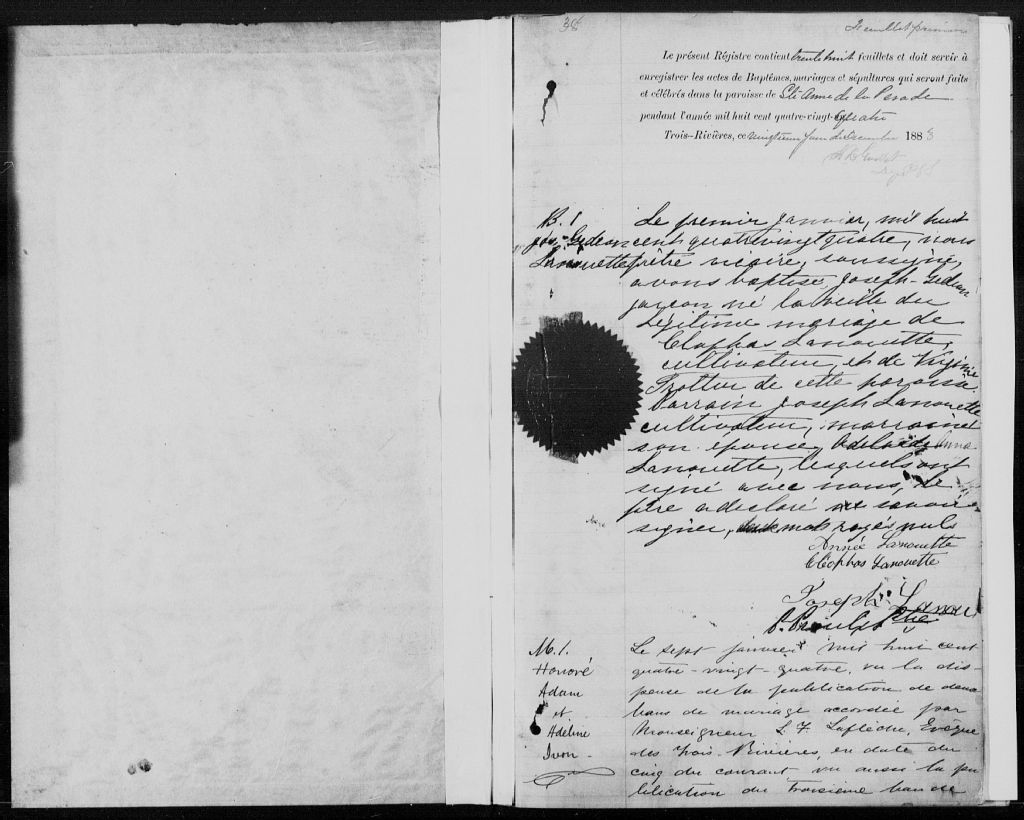 38
Feuillet premier
Le présent Régistre contient trente huit feuillets et doit servir à
enregistrer les actes de Baptêmes, mariages et sépultures qui seront faits
et célébrés dans la paroisse de Ste Anne de la Perade
pendant l'année mil huit cent quatre-vingt-quatre
Trois-Rivières, ce jour de Decembre 1883
B. 1
Jos. Gedeon
Lanouette
Le premier janvier, mil huit
cent quatrevingt quatre, nous
prêtre vicaire, soussigné,
avons baptisé Joseph-Gedeon
garçon né la veille du
légitime mariage de
Cléophas Lanouette,
cultivateur, et de Virginie
Trottier de cette paroisse.
Parrain Joseph Lanouette
cultivateur, marraine
son épouse, Adelaide
Lanouette, lesquels ont
signé avec nous, le
père a declaré ne savoir
signer, mots rayés nuls
Année Lanouette
Cléophas Lanouette
Joseph Lanouette
M. 1.
Honoré
Adam
et
Adeline
Ivon
Le sept janvier mil huit cent
quatre-vingt-quatre, vu la dis-
pense de la publication de deux
bans de mariage accordée par
Monseigneur L. F. Laflèche, Evêque
des Trois-Rivières, en date du
cinq du courant, vu aussi la pu
blication du troisième ban de